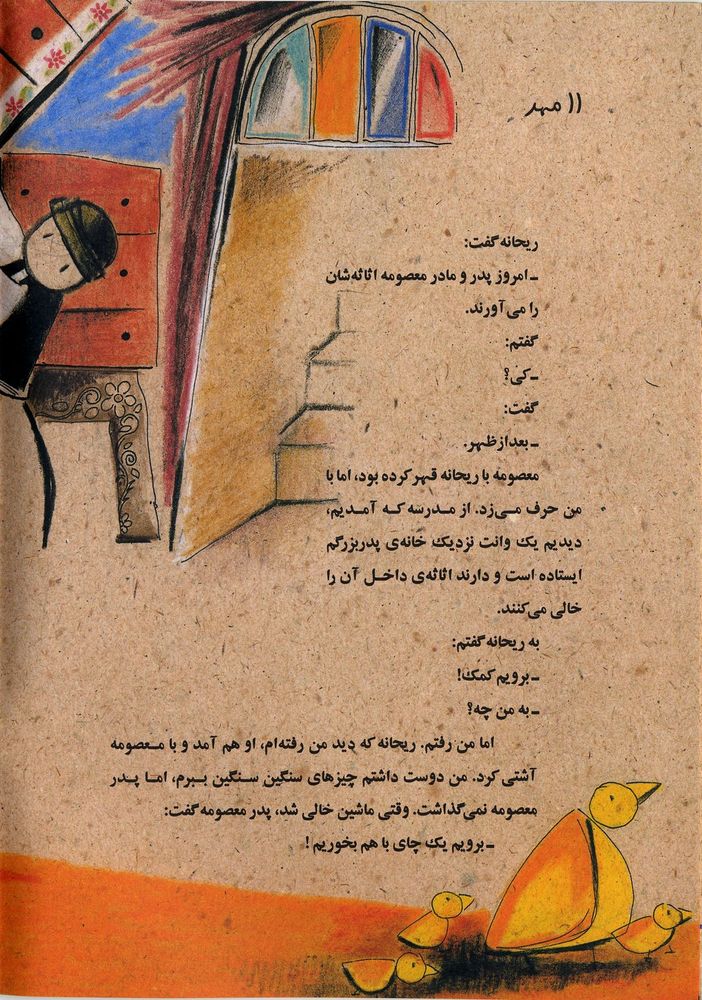 ۱۱ مهر
ریحانه گفت:
ـ امروز پدر و مادر معصومه اثاثه‌شان
را می‌آورند.
گفتم:
ـ کی؟
گفت:
ـ بعدازظهر.
معصومه با ریحانه قهر کرده بود، اما با
من حرف می‌زد. از مدرسه که آمدیم،
دیدیم یک وانت نزدیک خانه‌ی پدربزرگم
ایستاده است و دارند اثاثه‌ی داخل آن را
خالی می‌کنند.
به ریحانه گفتم:
ـ برویم کمک!
ـ به من چه؟
اما من رفتم. ریحانه که دید من رفته‌ام، او هم آمد و با معصومه
آشتی کرد. من دوست داشتم چیزهای سنگین سنگین ببرم، اما پدر
معصومه نمی‌گذاشت. وقتی ماشین خالی شد، پدر معصومه گفت:
ـ برویم یک چای با هم بخوریم!